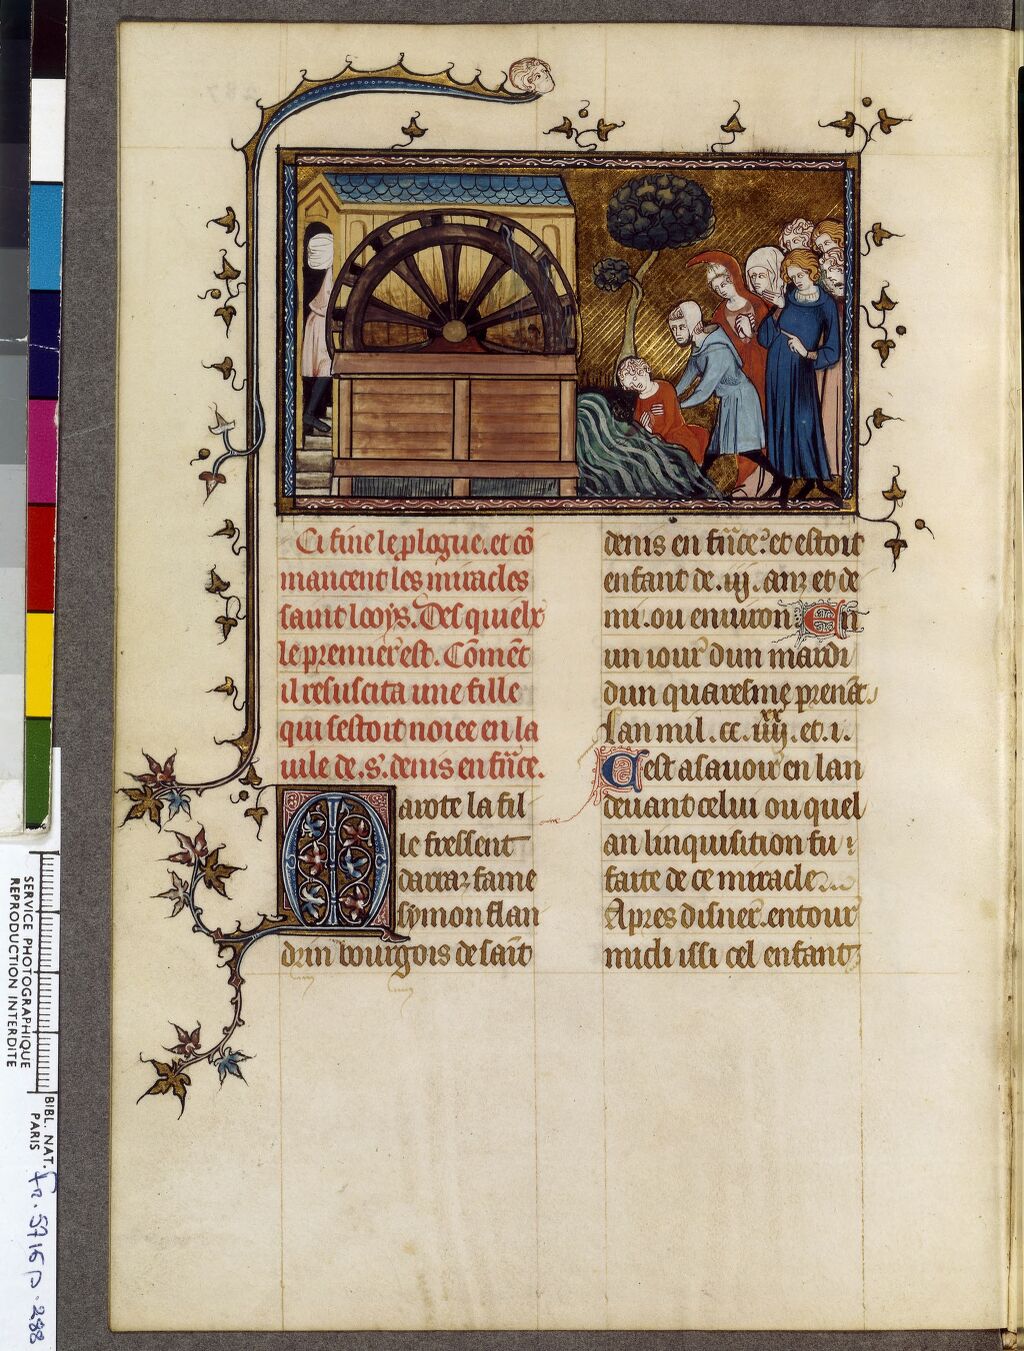 Ci fine le plogue. et cō
mancent les miracles
saint looys. Des quielx
le premier est. Cōment
il resuscita une fille
qui sestoit noiee en la
uile de .s. denis en frāce.
Marote la fil
le fressent
darraz fame
symon flan
drin bourgois de saīt
denis en frāce. et estoit
enfant de .iij. anz et de
mi. ou enuiron En
un iour dun mardi
dun quaresme prenāt.
Lan mil. cc. iiij. xx et .i.
Cest asauoir en lan
deuant celui ou quel
an linquisition fu
faite de ce miracle
Apres disner. entour
midi issi cel enfant
SERVICE PHOTOGRAPHIQUE
REPRODUCTION INTERDITE
BIBL. NAT.
PARIS
fr. 5716 p. 288